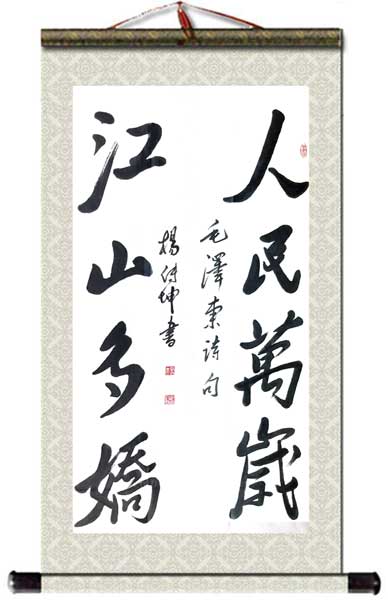 人民萬歲
毛澤東詩句
江山多嬌
楊傳坤書